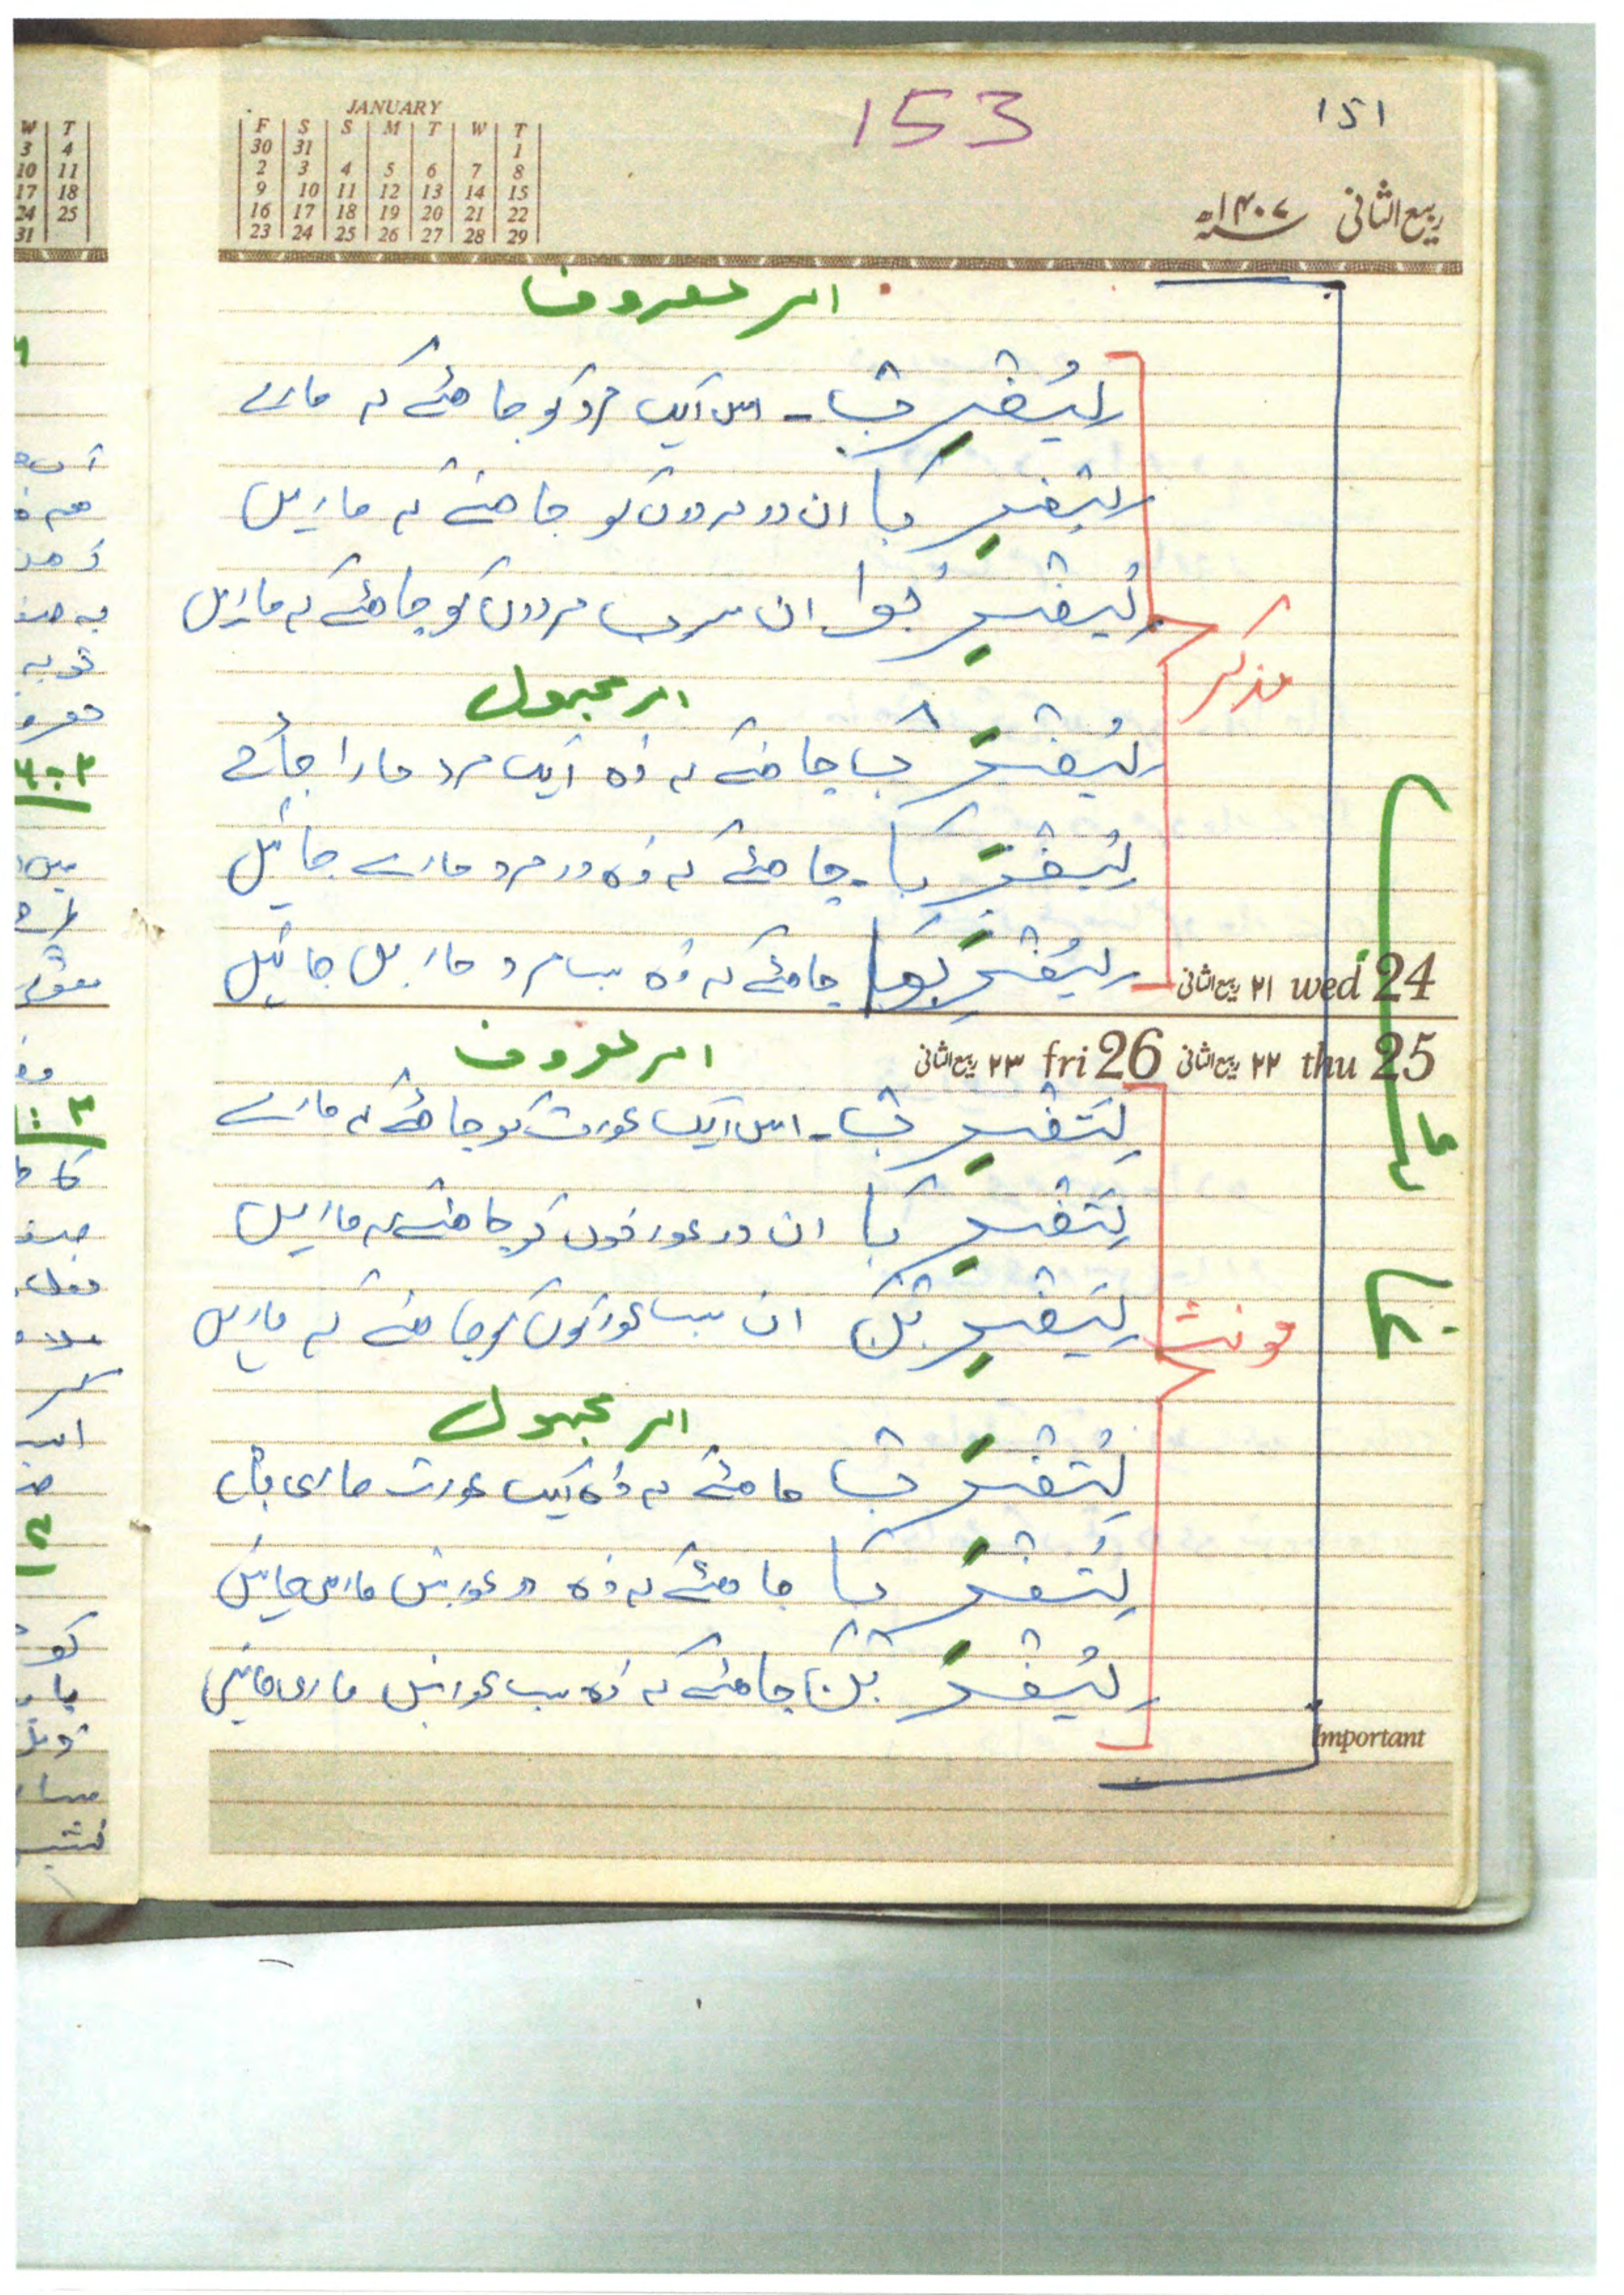 JANUARY
F S S M T W T
30 31 1
2 3 4 5 6 7 8
9 10 11 12 13 14 15
16 17 18 19 20 21 22
23 24 25 26 27 28 29
153
151
ربیع الثانی ۱۴۰۷ھ
امر معروف
لِیَضْرِبْ۔ اس ایک مرد کو چاہئے کہ مارے
لِیَضْرِبَا ان دو مردوں کو چاہئے کہ ماریں
لِیَضْرِبُوا ان سب مردوں کو چاہئے کہ ماریں
مذکر
امر مجہول
لِیُضْرَبْ چاہئے کہ وہ ایک مرد مارا جائے
لِیُضْرَبَا۔ چاہئے کہ وہ دو مرد مارے جائیں
لِیُضْرَبُوا چاہئے کہ وہ سب مرد ماریں جائیں
۲۱ ربیع الثانی wed 24
۲۲ ربیع الثانی thu 25
۲۳ ربیع الثانی fri 26
امر معروف
لِتَضْرِبْ۔ اس ایک عورت کو چاہئے کہ مارے
لِتَضْرِبَا ان دو عورتوں کو چاہئے کہ ماریں
لِیَضْرِبْنَ ان سب عورتوں کو چاہئے کہ ماریں
مونث
امر مجہول
لِتُضْرَبْ چاہئے کہ وہ ایک عورت ماری جائے
لِتُضْرَبَا چاہئے کہ وہ دو عورتیں ماری جائیں
لِیُضْرَبْنَ چاہئے کہ وہ سب عورتیں ماری جائیں
Important